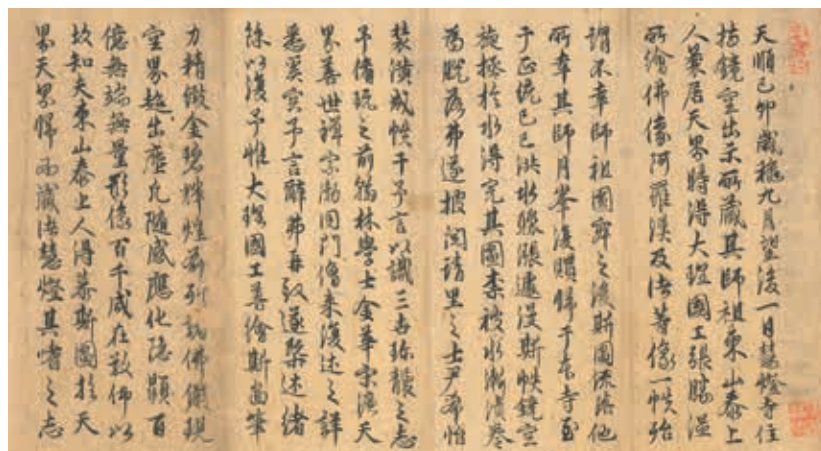 天順己卯歲穐九月望後一日慧燈寺住
持鏡空出示所藏其師祖東山泰上
人纂居天界時得大理國工張勝溫
所繪佛像阿羅漢及諸等像一帙殆
謂不幸師祖圓寂之後斯圖流落他
所幸其師月峯復贖歸于本寺至
于正統己巳洪水驟漲遽沒斯帙鏡空
旋拯於水得完其圖柰被水漸漬卷
為脫落弗遂披閱請里之士尹希惟
裝潢成帙干予言以識三古珍襲之志
予備玩之前翰林學士金華宋濂天
界善世禪宗泐同門僧来復述之詳
悉奚容予言辭弗再致遂槩述緒
餘以復予惟大理國工善繪斯圖筆
力精緻金碧輝煌前列諸佛儼現
空界超出塵凡隨感應化隱顯百
億無端無量形像百千咸在敬仰以
故知夫東山泰上人得慕斯圖於天
界天界歸而藏諸慧燈其嗜之志